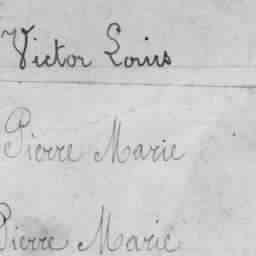 Victor Louis
Pierre Marie
Pierre Marie